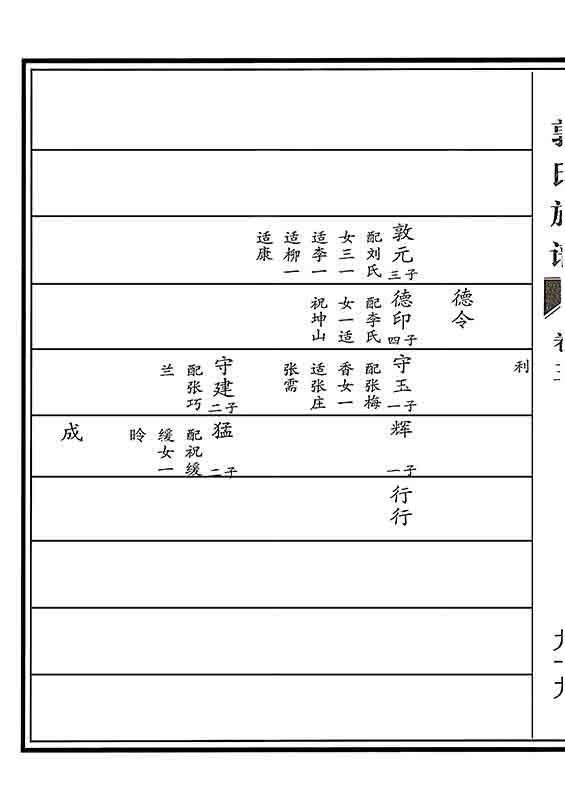 郭氏族谱
卷三
九十九
敦元
三子
配刘氏
女三一
适李一
适柳一
适康
德令
德印
四子
配李氏
女一适
祝坤山
利
守玉
一子
配张梅
香女一
适张庄
张需
守建
二子
配张巧
兰
辉
一子
猛
二子
配祝缓
缓女一
昤
成
行行